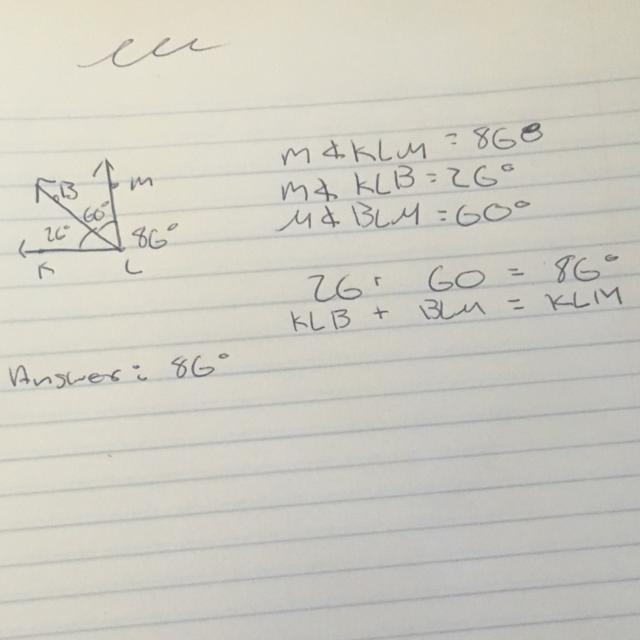 m∡KLM = 86°
m∡ KLB = 26°
M∡ BLM = 60°
B
M
26°
60°
86°
K
L
26 + 60 = 86°
KLB + BLM = KLM
Answer: 86°